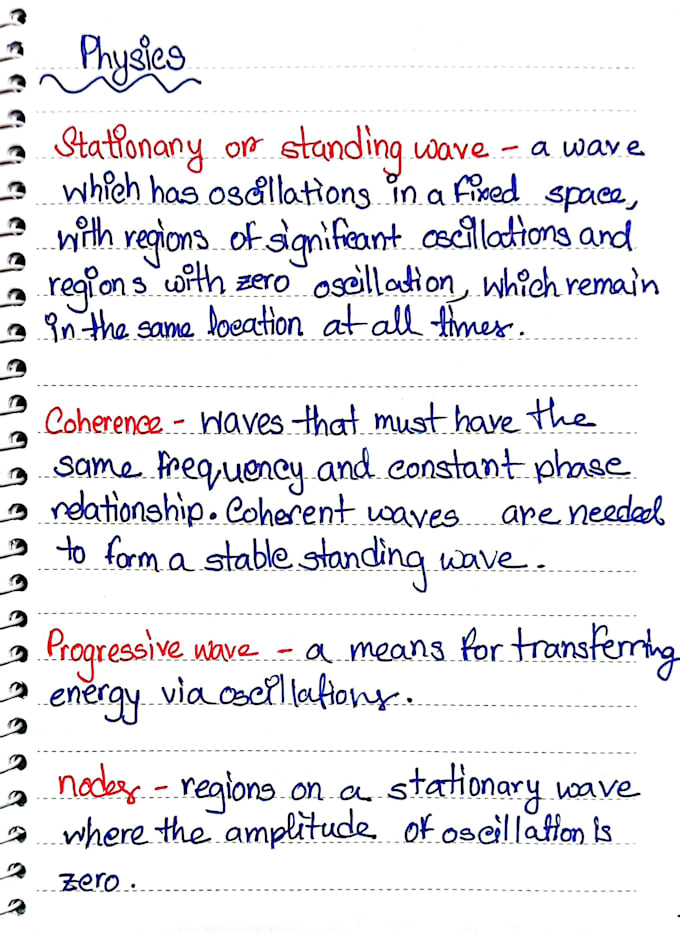 Physics
Stationary or standing wave - a wave
which has oscillations in a fixed space,
with regions of significant oscillations and
regions with zero oscillation, which remain
in the same location at all times.
Coherence - waves that must have the
same frequency and constant phase
relationship. Coherent waves are needed
to form a stable standing wave.
Progressive wave - a means for transferring
energy via oscillations.
nodes - regions on a stationary wave
where the amplitude of oscillation is
zero.